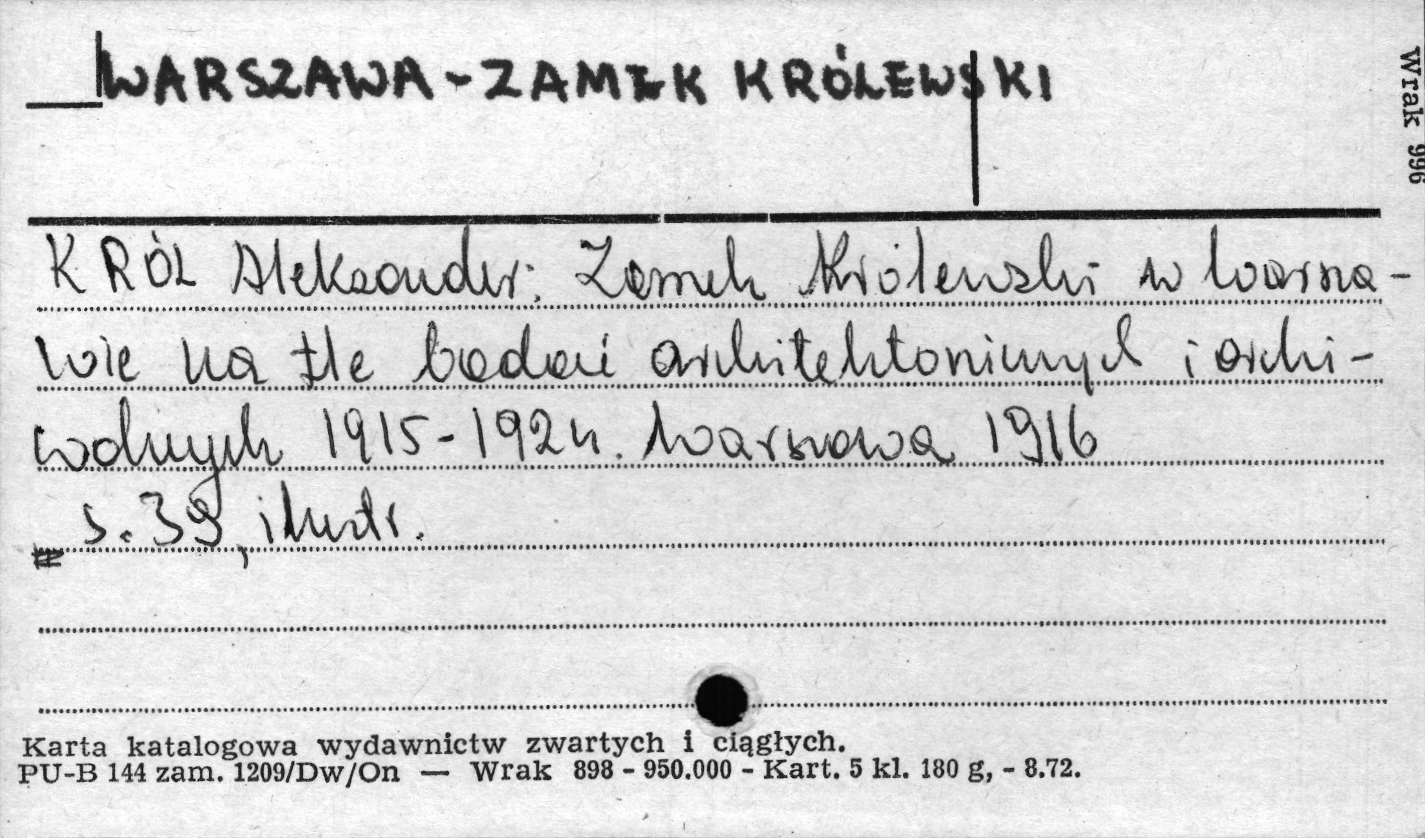 WARSZAWA - ZAMEK KRÓLEWSKI
Wrak 996
KRÓL Aleksander: Zamek Królewski w Warsza-
wie na tle badań architektonicznych i archi-
walnych 1915-1924. Warszawa 1916
s. 39, ilustr.
Karta katalogowa wydawnictw zwartych i ciągłych.
PU-B 144 zam. 1209/Dw/On — Wrak 898 - 950.000 - Kart. 5 kl. 180 g, - 8.72.